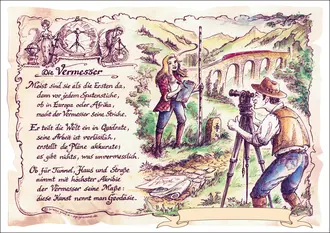 Die Vermesser
Meist sind sie als die Ersten da,
denn vor jedem Spatenstiche,
ob in Europa oder Afrika,
macht der Vermesser seine Striche.
Er teilt die Welt ein in Quadrate,
seine Arbeit ist verlässlich,
erstellt die Pläne akkurate;
es gibt nichts, was unvermesslich.
Ob für Tunnel, Haus und Straße
nimmt mit höchster Akribie
der Vermesser seine Maße;
diese Kunst nennt man Geodäsie.